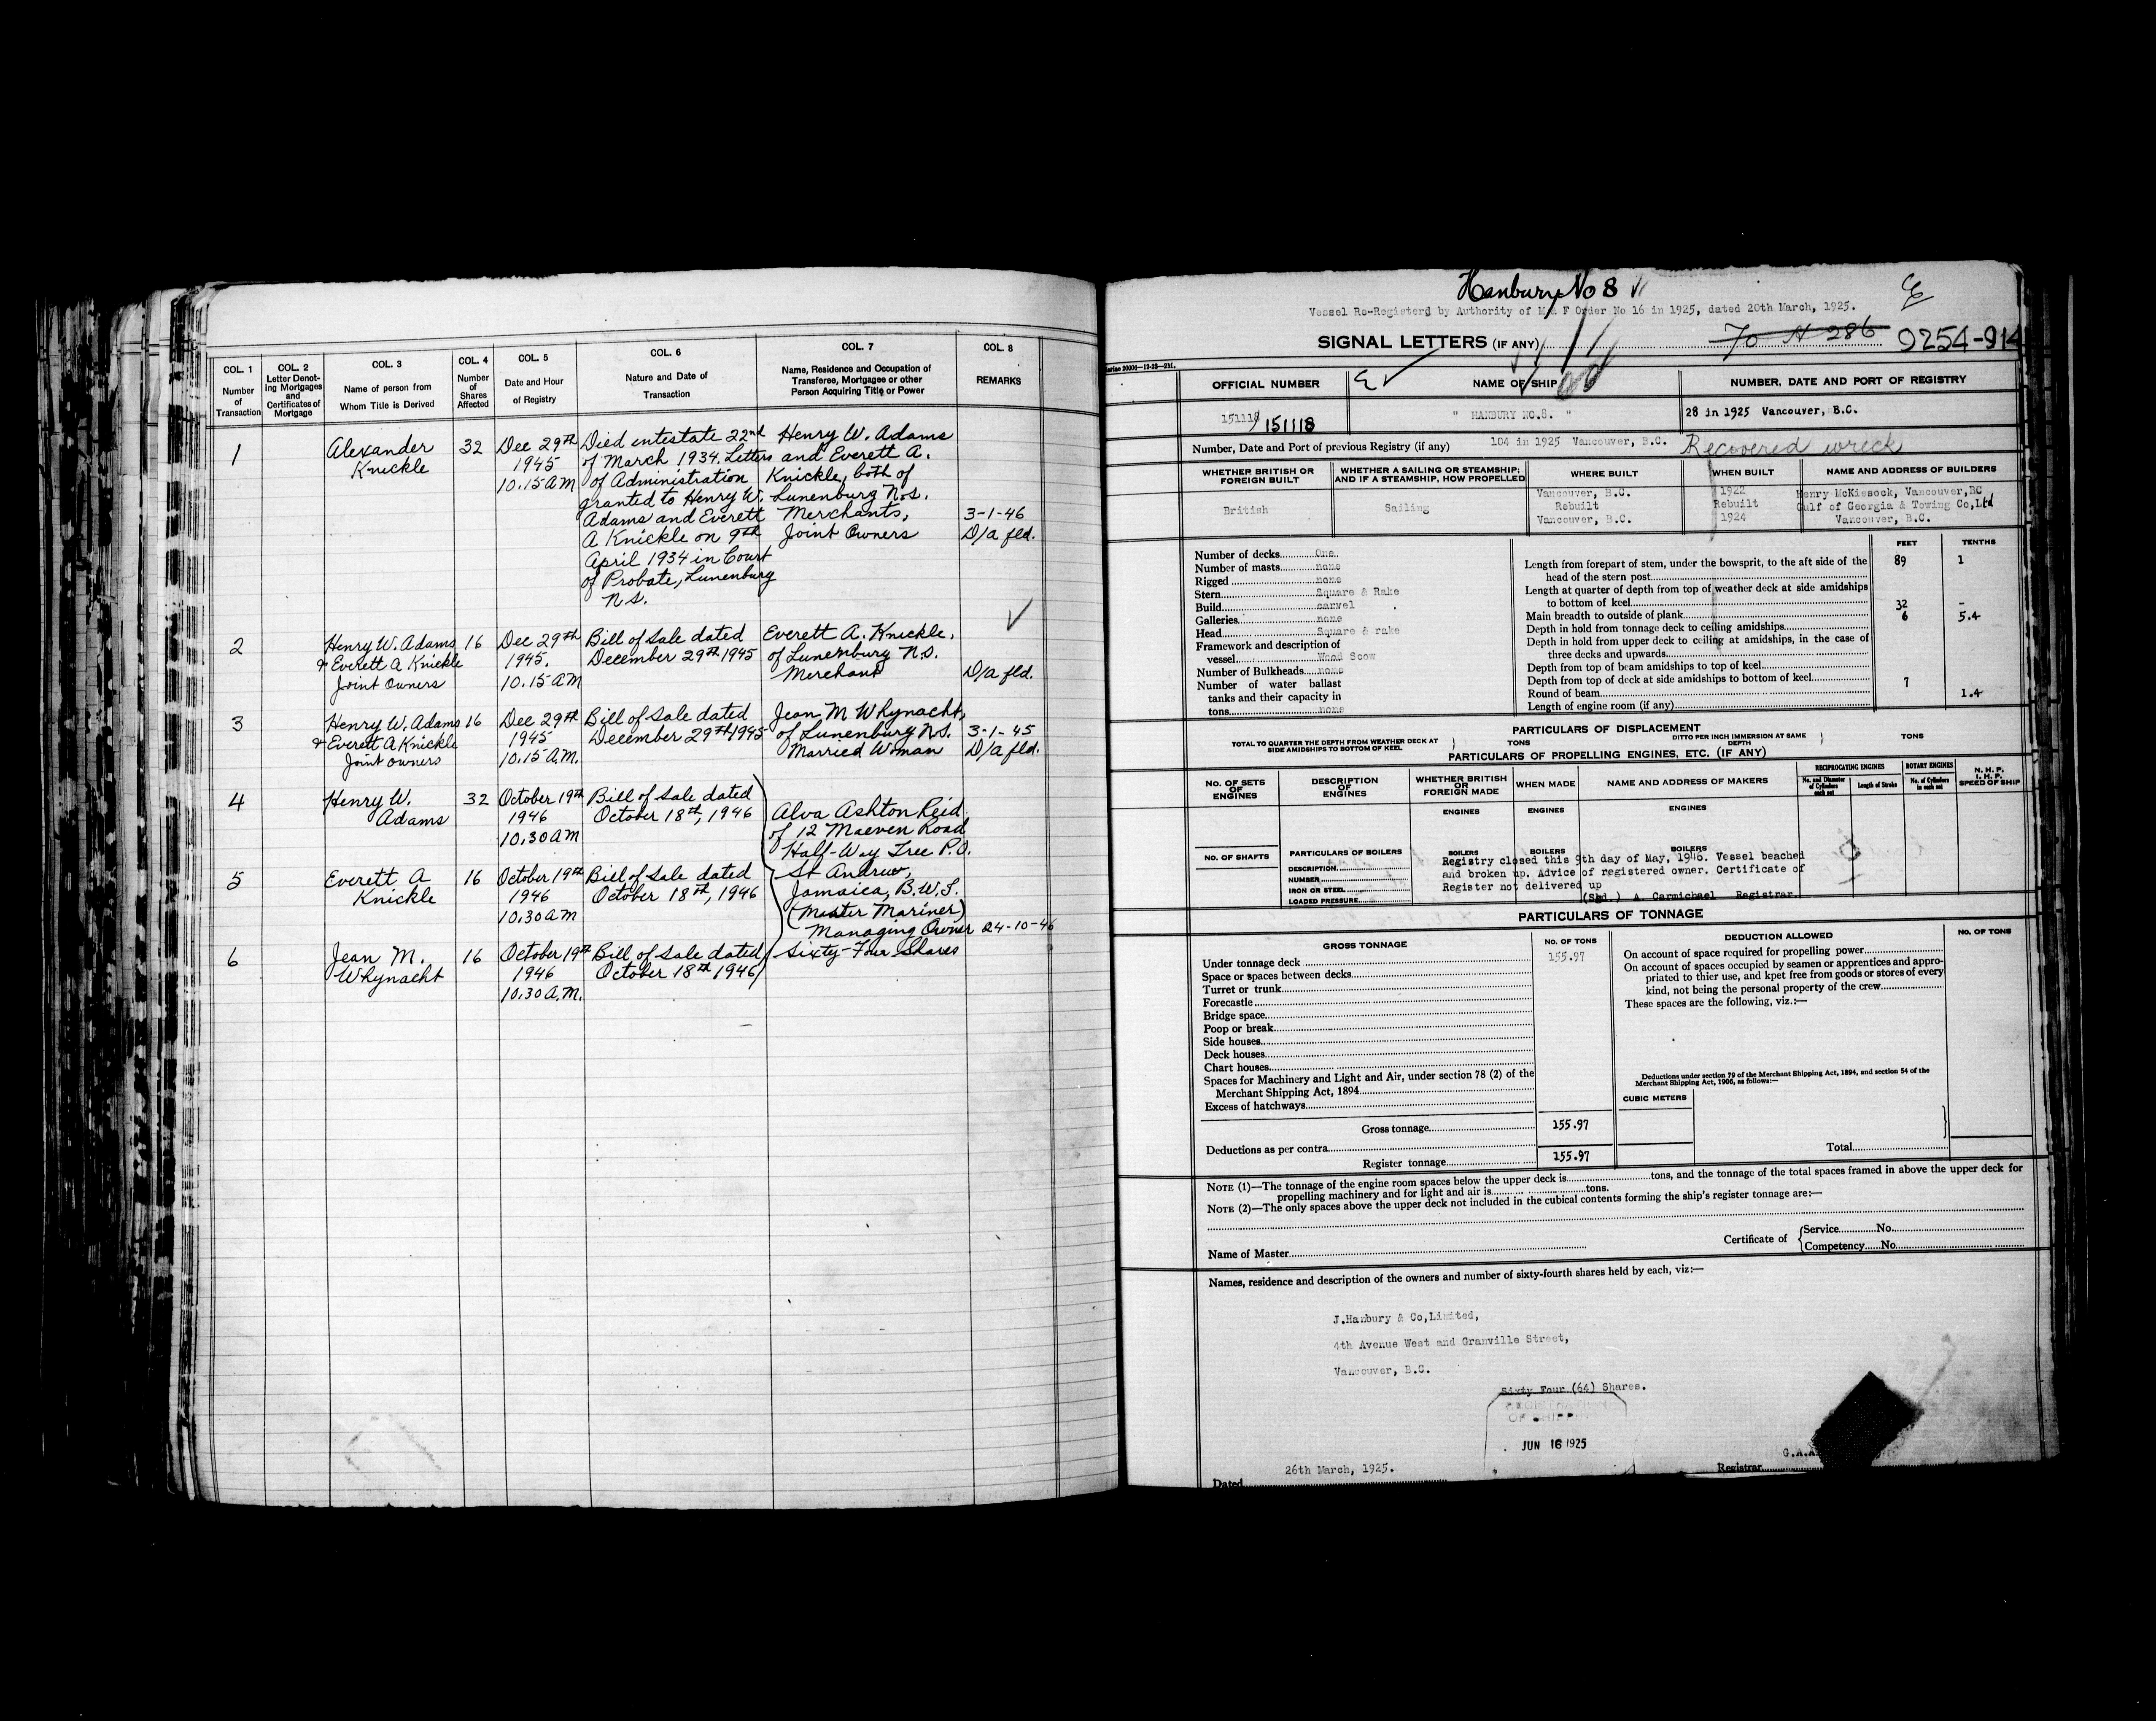 COL. 1
Number
of
Transaction
COL. 2
Letter Denot-
ing Mortgages
and
Certificates of
Mortgage
COL. 3
Name of person from
Whom Title is Derived
COL. 4
Number
of
Shares
Affected
COL. 5
Date and Hour
of Registry
COL. 6
Nature and Date of
Transaction
COL. 7
Name, Residence and Occupation of
Transferee, Mortgagee or other
Person Acquiring Title or Power
COL. 8
REMARKS
1
Alexander
Knickle
32
Dec 29th
1945
10.15 AM
Died intestate 22nd
of March 1934. Letters
of Administration
granted to Henry W.
Adams and Everett
A Knickle on 9th
April 1934 in Court
of Probate, Lunenburg
N.S.
Henry W. Adams
and Everett A.
Knickle, both of
Lunenburg N.S.
Merchants,
Joint Owners
3-1-46
D/a fld.
2
Henry W. Adams
& Everett A Knickle
Joint Owners
16
Dec 29th
1945.
10.15 AM
Bill of Sale dated
December 29th 1945
Everett A. Knickle,
of Lunenburg N.S.
Merchant
D/a fld.
3
Henry W. Adams
& Everett A Knickle
Joint owners
16
Dec 29th
1945
10.15 A.M.
Bill of Sale dated
December 29th 1945
Jean M Whynacht,
of Lunenburg N.S.
Married Woman
3-1-45
D/a fld.
4
Henry W.
Adams
32
October 19th
1946
10.30 AM
Bill of Sale dated
October 18th, 1946
5
Everett A
Knickle
16
October 19th
1946
10.30 AM
Bill of Sale dated
October 18th, 1946
6
Jean M.
Whynacht
16
October 19th
1946
10.30 A.M.
Bill of Sale dated
October 18th 1946
Alva Ashton Reid
of 12 Maeven Road
Half-Way Tree P.O.
St Andrew,
Jamaica, B.W.I.
(Master Mariner)
Managing Owner
Sixty-Four Shares
24-10-46
Hanbury No 8
Vessel Re-Registerd by Authority of M & F Order No 16 in 1925, dated 20th March, 1925.
SIGNAL LETTERS (IF ANY)
To A 286
9254-914
OFFICIAL NUMBER
NAME OF SHIP
NUMBER, DATE AND PORT OF REGISTRY
151118
" HANBURY NO.8. "
28 in 1925 Vancouver, B.C.
Number, Date and Port of previous Registry (if any)
104 in 1925 Vancouver, B.C.
Recovered wreck
WHETHER BRITISH OR
FOREIGN BUILT
WHETHER A SAILING OR STEAMSHIP;
AND IF A STEAMSHIP, HOW PROPELLED
WHERE BUILT
WHEN BUILT
NAME AND ADDRESS OF BUILDERS
British
Sailing
Vancouver, B.C.
Rebuilt
Vancouver, B.C.
1922
Rebuilt
1924
Henry McKissock, Vancouver,BC
Gulf of Georgia & Towing Co,Ltd
Vancouver, B.C.
Number of decks One
Number of masts none
Rigged none
Stern Square & Rake
Build carvel
Galleries none
Head Square & rake
Framework and description of
vessel Wood Scow
Number of Bulkheads none
Number of water ballast
tanks and their capacity in
tons none
FEET TENTHS
Length from forepart of stem, under the bowsprit, to the aft side of the
head of the stern post 89 1
Length at quarter of depth from top of weather deck at side amidships
to bottom of keel
Main breadth to outside of plank 32 -
Depth in hold from tonnage deck to ceiling amidships 6 5.4
Depth in hold from upper deck to ceiling at amidships, in the case of
three decks and upwards
Depth from top of beam amidships to top of keel
Depth from top of deck at side amidships to bottom of keel 7
Round of beam 1.4
Length of engine room (if any)
PARTICULARS OF DISPLACEMENT
TOTAL TO QUARTER THE DEPTH FROM WEATHER DECK AT
SIDE AMIDSHIPS TO BOTTOM OF KEEL
TONS
DITTO PER INCH IMMERSION AT SAME
DEPTH
TONS
PARTICULARS OF PROPELLING ENGINES, ETC. (IF ANY)
NO. OF SETS
OF
ENGINES
DESCRIPTION
OF
ENGINES
WHETHER BRITISH
OR
FOREIGN MADE
WHEN MADE
NAME AND ADDRESS OF MAKERS
RECIPROCATING ENGINES
No. and Diameter
of Cylinders
each set
Length of Stroke
ROTARY ENGINES
No. of Cylinders
in each set
N. H. P.
I. H. P.
SPEED OF SHIP
ENGINES
ENGINES
ENGINES
NO. OF SHAFTS
PARTICULARS OF BOILERS
DESCRIPTION
NUMBER
IRON OR STEEL
LOADED PRESSURE
BOILERS
BOILERS
BOILERS
Registry closed this 9th day of May, 1946. Vessel beached
and broken up. Advice of registered owner. Certificate of
Register not delivered up
(Sgd.) A. Carmichael Registrar.
PARTICULARS OF TONNAGE
GROSS TONNAGE
NO. OF TONS
DEDUCTION ALLOWED
NO. OF TONS
Under tonnage deck 155.97
Space or spaces between decks
Turret or trunk
Forecastle
Bridge space
Poop or break
Side houses
Deck houses
Chart houses
Spaces for Machinery and Light and Air, under section 78 (2) of the
Merchant Shipping Act, 1894
Excess of hatchways
Gross tonnage 155.97
Deductions as per contra
Register tonnage 155.97
On account of space required for propelling power
On account of spaces occupied by seamen or apprentices and appro-
priated to thier use, and kpet free from goods or stores of every
kind, not being the personal property of the crew
These spaces are the following, viz.:—
Deductions under section 79 of the Merchant Shipping Act, 1894, and section 54 of the
Merchant Shipping Act, 1906, as follows:—
CUBIC METERS
Total
NOTE (1)—The tonnage of the engine room spaces below the upper deck is tons, and the tonnage of the total spaces framed in above the upper deck for
propelling machinery and for light and air is tons.
NOTE (2)—The only spaces above the upper deck not included in the cubical contents forming the ship's register tonnage are:—
Name of Master
Certificate of
Service No.
Competency No.
Names, residence and description of the owners and number of sixty-fourth shares held by each, viz:—
J.Hanbury & Co,Limited,
4th Avenue West and Granville Street,
Vancouver, B.C.
Sixty Four (64) Shares.
REGISTRATION
OF SHIPPING
JUN 16 1925
Dated 26th March, 1925.
G.A.
Registrar